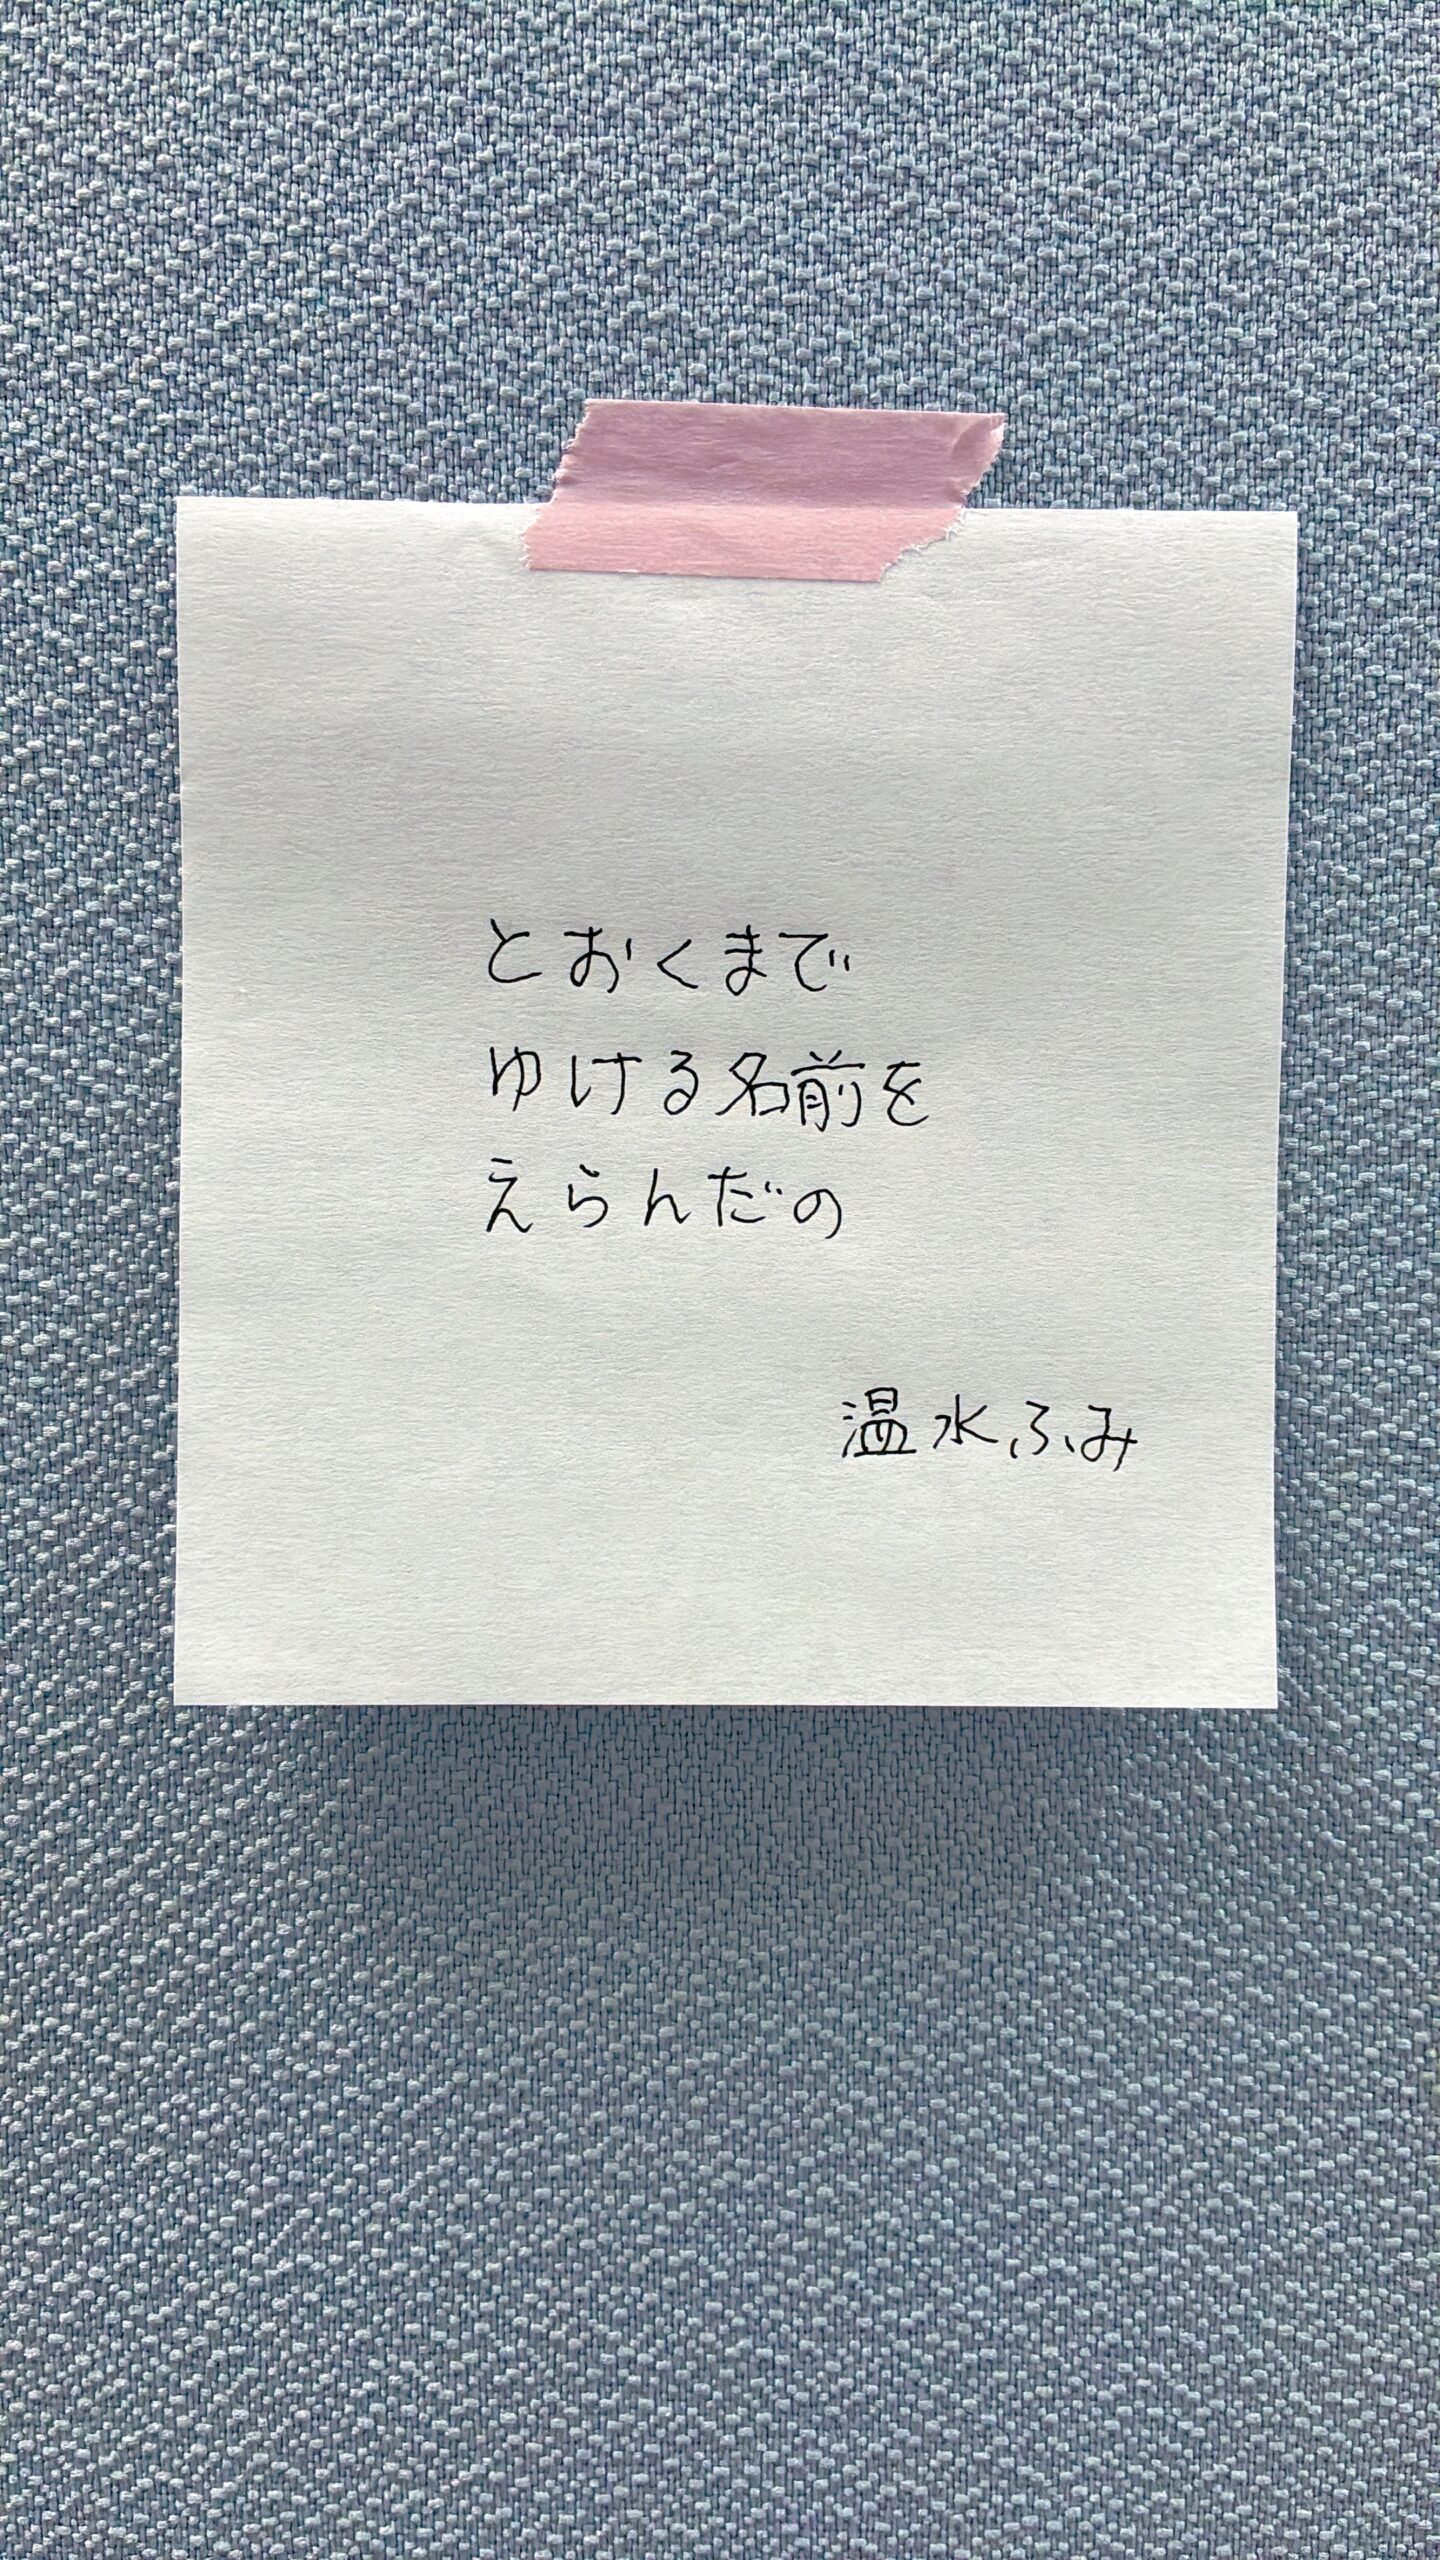 とおくまで
ゆける名前を
えらんだの
温水ふみ